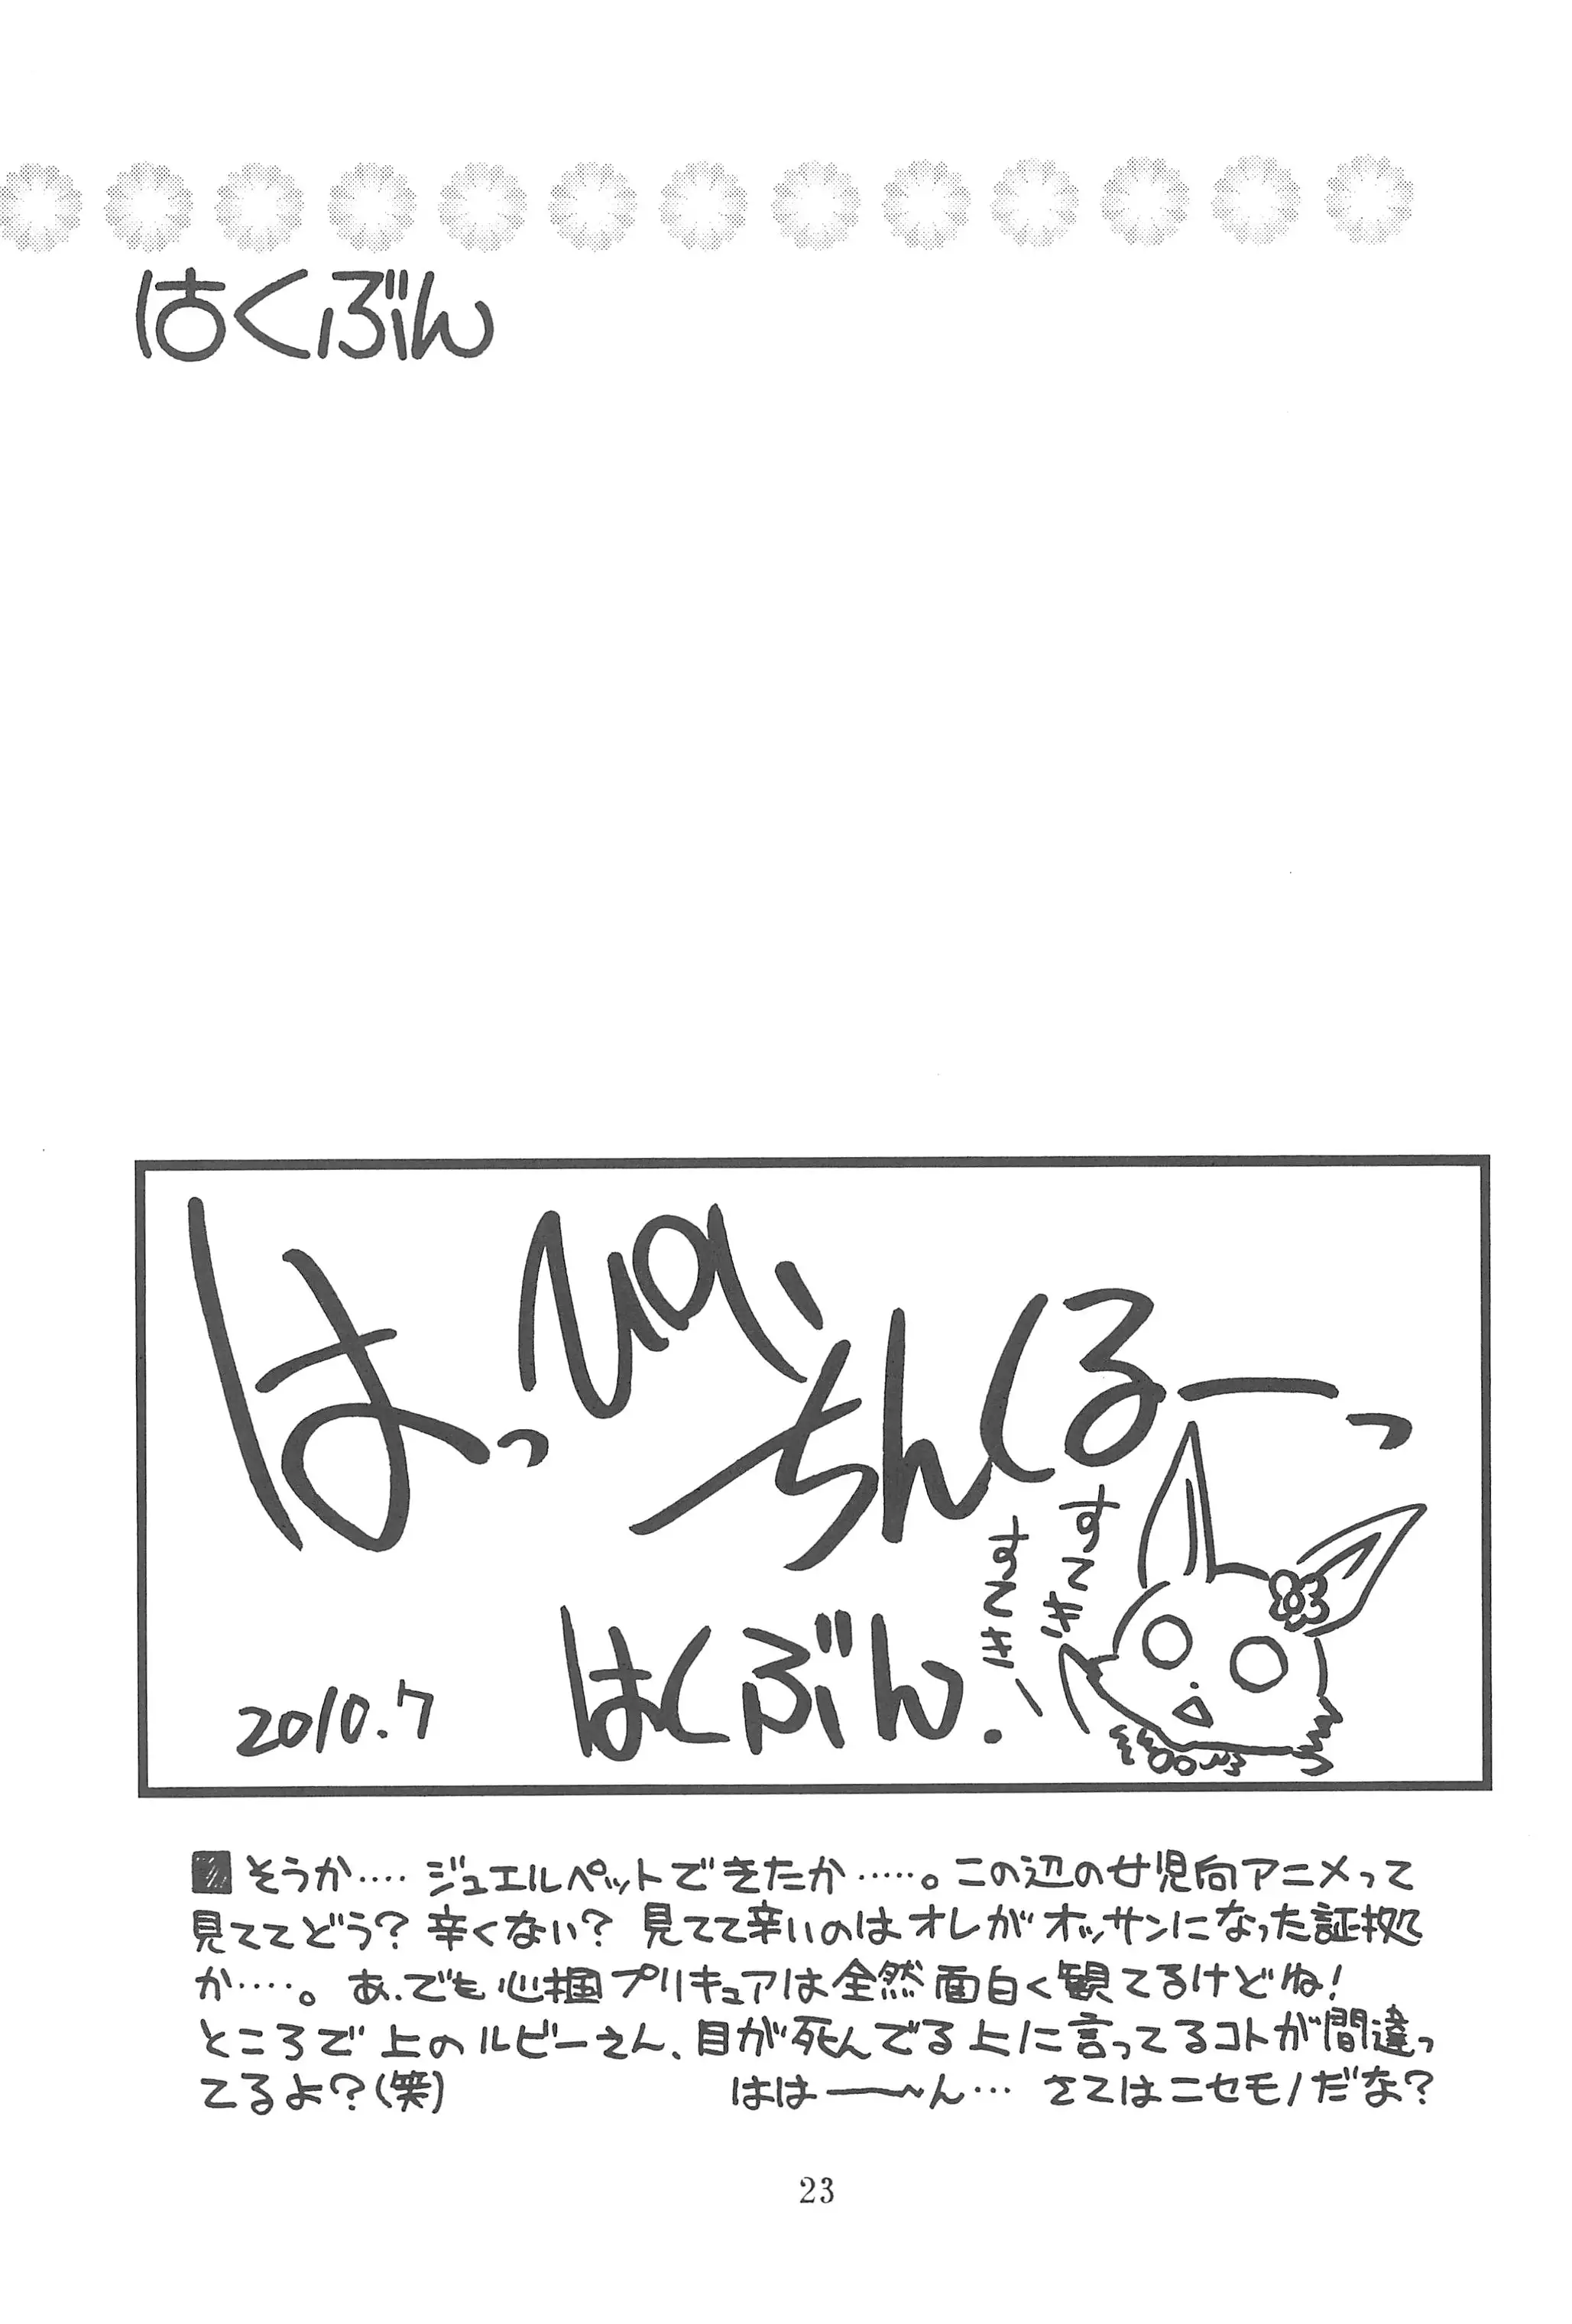 はくぶん
はっぴぃ
ちんくるーっ
すてき
すてき!
2010.7
はくぶん.
■そうか‥‥ジュエルペットできたか‥‥‥。この辺の女児向アニメって
見ててどう?辛くない?見てて辛いのはオレがオッサンになった証拠
か‥‥‥。あ、でも心掴プリキュアは全然面白く観てるけどね!
ところで上のルビーさん、目が死んでる上に言ってるコトが間違っ
てるよ?(笑) はは――~ん… さてはニセモノだな?
23